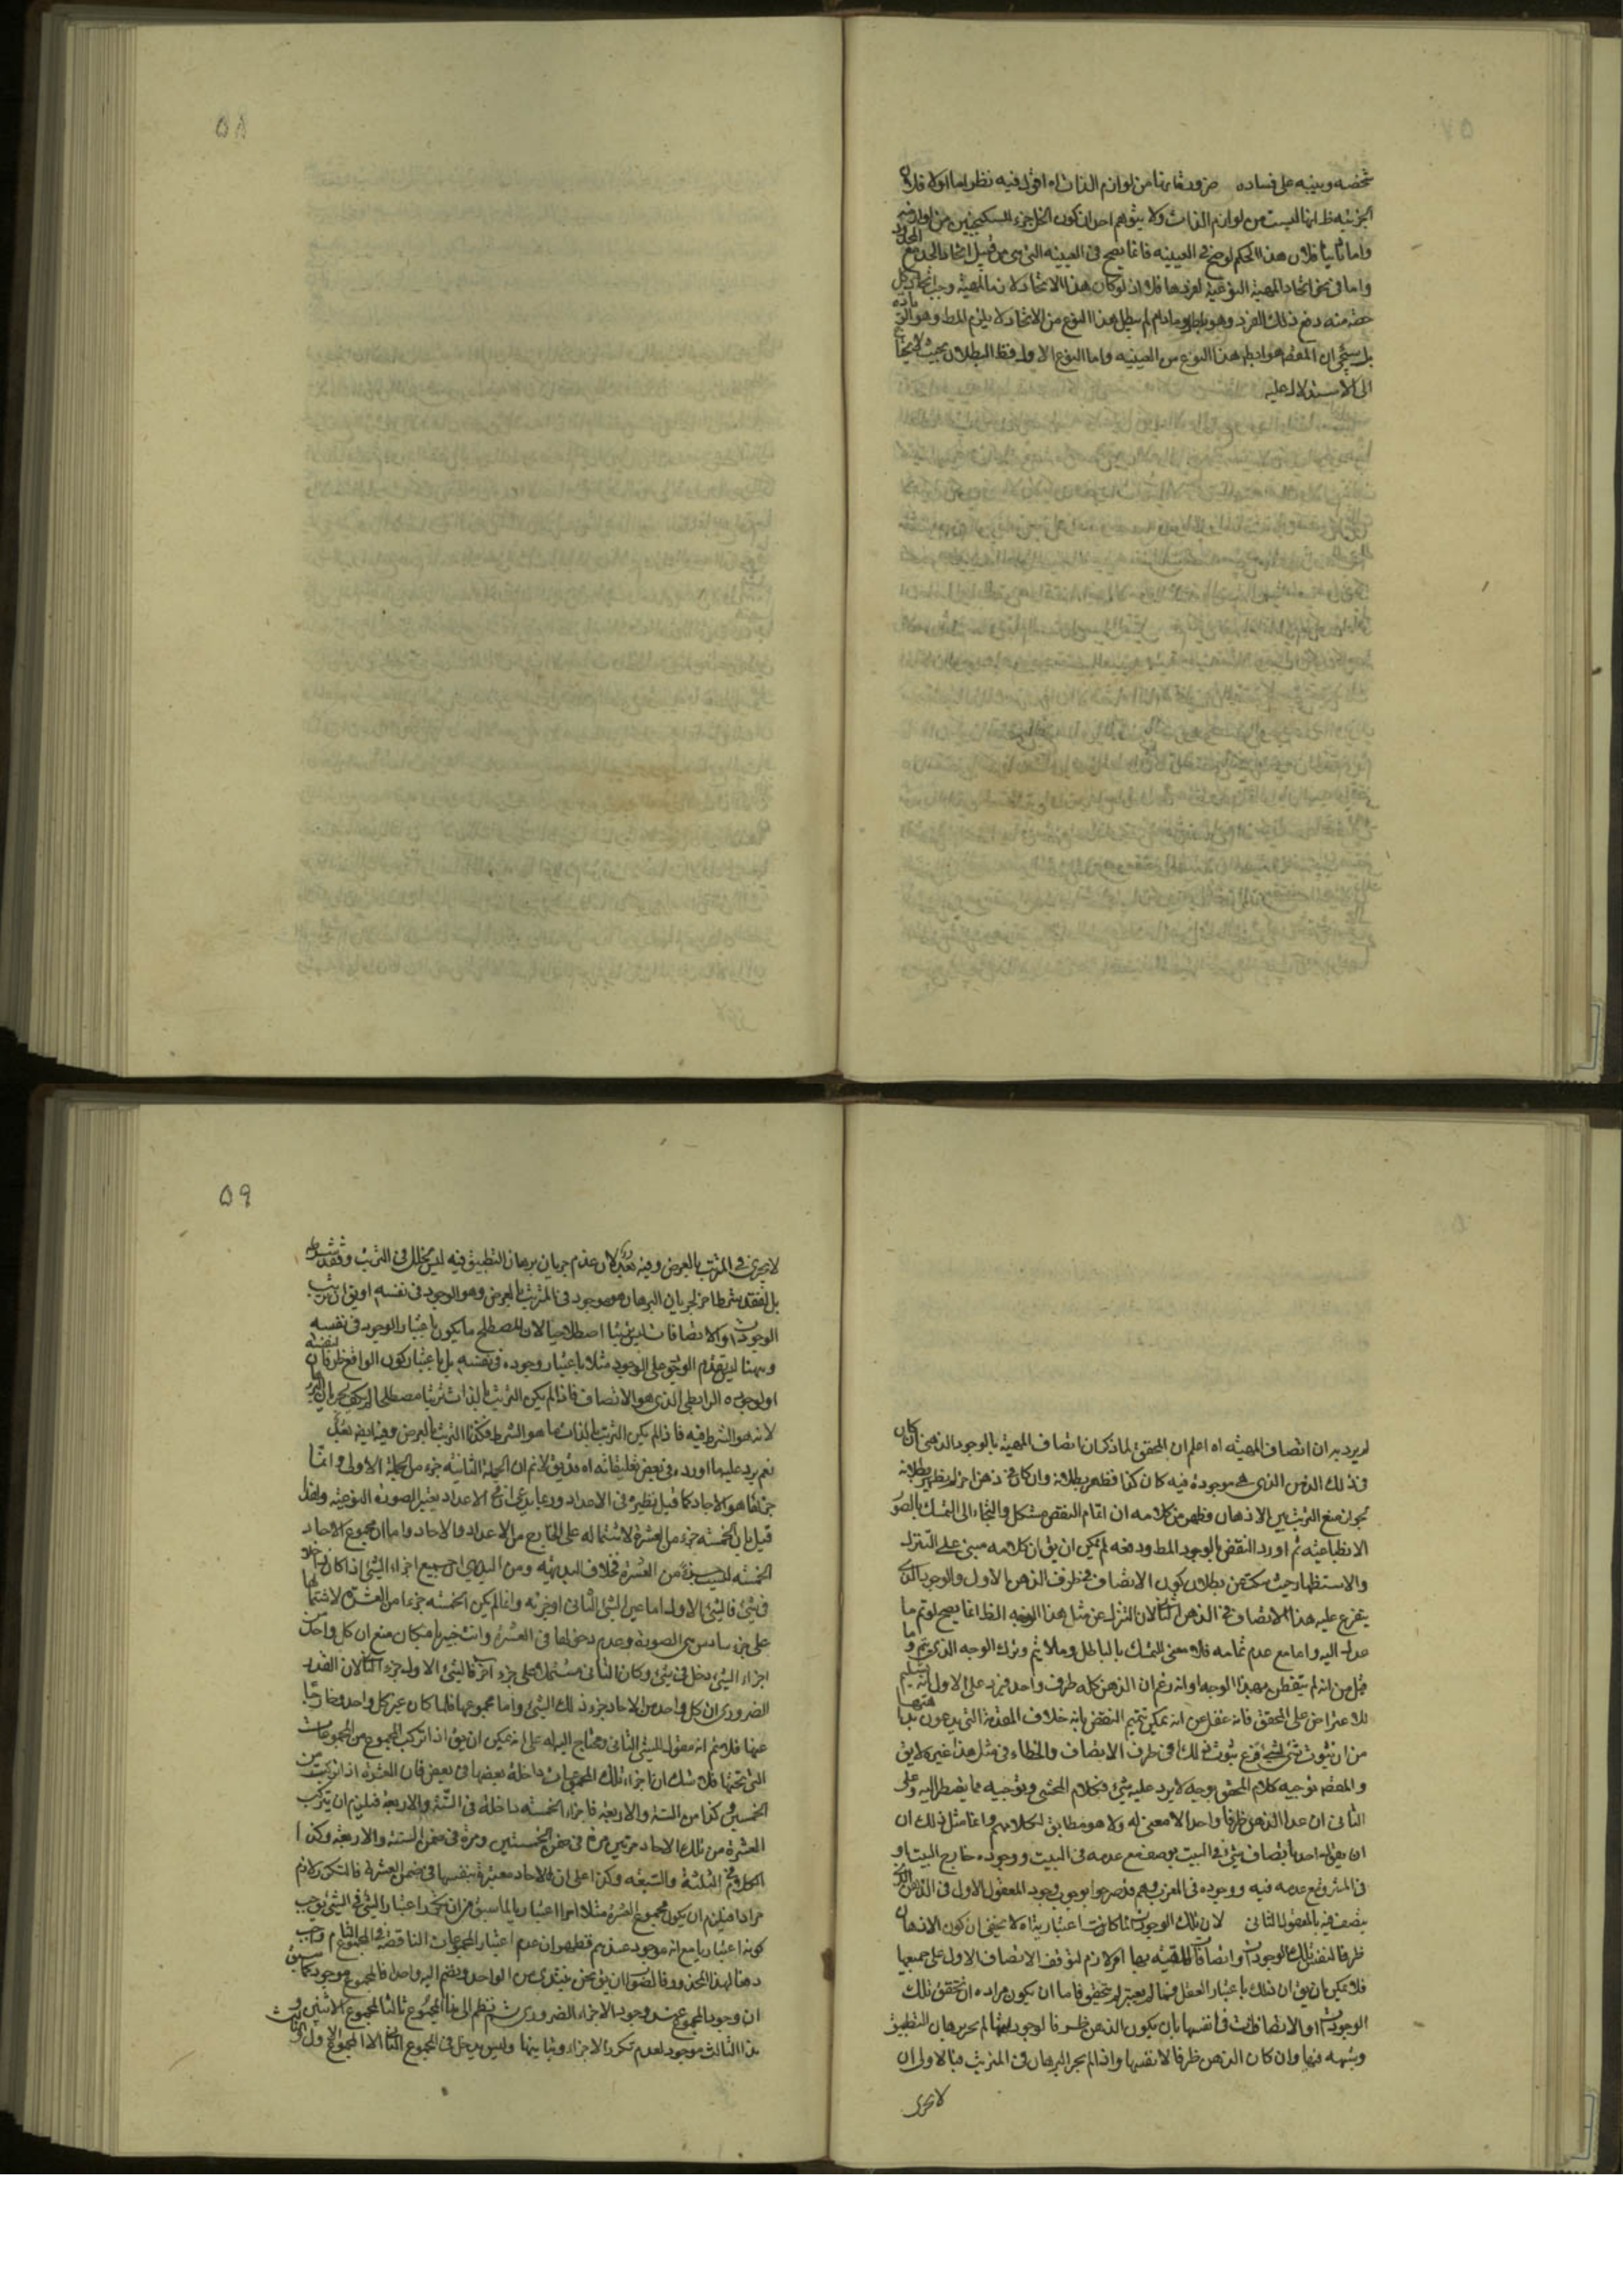 ٥٨
شخصه وبينه على فساده ضرورة انها من لوازم الذات اه اقول فيه نظر اما اولا فلان
الجزئيه ظ انها ليست من لوازم الذات ولا يتوهم احد ان كون الخل جزء السكنجبين من لوازمه
واما ثانيا فلان هذا الحكم لو صح في العينيه فانما يصح في العينيه التي هي من قبيل اتحاد الحد مع المحدود
واما في نحو اتحاد المهية النوعية لفردها فلا اذ لو كان هذا الاتحاد لازما للمهية وجب اتحاد كل
حصة منه مع ذلك الفرد وهو باطل وما دام لم يبطل هذا النوع من الاتحاد لا يلزم المط وهو
بل ستجئ ان المقصد هو ابطال هذا النوع من العينيه واما النوع الاول فظ البطلان بحيث لا يحتاج
الى الاستدلال عليه
٥٩
لم يرد به ان اتصاف المهية اه اعلم ان المحقق لما ذكر ان اتصاف المهية بالوجود الذهني ان كان
في ذلك الذهن الذي هي موجودة فيه كان كذا فظهر بطلانه وان كان في ذهن اخر لم يظهر بطلانه
لجواز منع الترتب بين الاذهان وظهر من كلامه ان اتمام النقض مشكل والتجاء الى التمسك بالصور
الانطباعيه ثم اورد النقض بالوجود المط ودفعه لم يمكن ان يق ان كلامه مبنى على التنزل
والاستظهار حيث سكت عن بطلان كون الاتصاف في ظرف الذهن الاول والوجود الذى
يتفرع عليه هذا الاتصاف في الذهن الثانى لان التنزل عن مثل هذا الوجه الظ انما يصح لو تم ما
عدل اليه واما مع عدم تمامه فلا معنى للتمسك بالباطل وما لا يتم وترك الوجه الذى يتم وما
قيل من انه لم يتفطن بهذا الوجه او انه زعم ان الذهن كله ظرف واحد فيرد على الاول انه تسليم
للاعتراض على المحقق فانه غفل عن انه يمكن تتميم النقض بانه خلاف المقدمة التي يدعون بداهتها
من ان ثبوت شئ لشئ فرع ثبوت ذلك في ظرف الاتصاف والخطاء في مثل هذا غير لايق
والمقصد توجيه كلام المحقق بوجه لا يرد عليه شئ فكلام المحشى وتوجيهه مما يضطر اليه وعلى
الثانى ان عد الذهن ظرفا واحدا لا معنى له ولا هو مطابق لكلامهم وانما مثل ذلك ان
ان يقول احد باتصاف شئ في البيت بوصف مع عدمه في البيت ووجوده خارج البيت او
في المشرق مع عدمه فيه ووجوده في المغرب وهم قد صرحوا بوجوب وجود المعقول الاول في الذهن الذى
يتصف فيه بالمعقول الثانى لان تلك الوجودات لما كانت اعتبارية اه لا يخفى ان كون الاذهان
ظرفا لنفس تلك الوجودات او اتصافات المهية بها امر لازم لتوقف الاتصاف الاول على جميعها
فلا يمكن ان يق ان ذلك باعتبار العقل فما لم يعتبر لم يتحقق فاما ان يكون مراده ان تحقق تلك
الوجودات او الاتصافات في انفسها بان يكون الذهن ظرفا لوجودها لم يجر برهان التطبيق
وشبهه فيها وان كان الذهن ظرفا لانفسها واذا لم يجر البرهان في المترتب فبالاولى ان
لا يجرى
لا يجرى في المترتب بالعرض وفيه تأمل لان عدم جريان برهان التطبيق فيه ليس لخلل في الترتب وفقد شرطه
بل لفقد شرط اخر لجريان البرهان هو موجود في المترتب بالعرض وهو الوجود في نفسه او يق ان ترتب
الوجودات او الاتصافات ليس ترتبا اصطلاحيا لان المصطلح ما يكون باعتبار الوجود في نفسه
وههنا ليس تقدم الوجود على الوجود مثلا باعتبار وجوده في نفسه بل باعتبار كون الواقع ظرفا لنفسه
او لوجوده الرابطى الذى هو الاتصاف فاذا لم يكن الترتب بالذات ترتبا مصطلحا لم يكف لجريان البرهان
لانه هو الشرط فيه فاذا لم يكن الترتب بالذات ما هو الشرط فكذا الترتب بالعرض وفيه ايضا تأمل
نعم يرد عليها اورده في بعض تعليقاته اه قد يق لا نم ان الجملة الثانية جزء من الجملة الاولى وانما
جزئها هو الاحاد كما قيل نظيره في الاعداد وربما يدعى ان في الاعداد يعتبر الصورة النوعية ولهذا
قيل بان الخمسة جزء من العشرة لاشتماله على الخارج من الاعداد والاحاد واما ان مجموع الاحاد
الخمسة ليست جزء من العشرة فخلاف البديهة ومن البديهى ان جميع اجزاء الشئ اذا كان داخلا
في شئ فالشئ الاول اما عين الشئ الثانى او جزئه وانما لم يكن الخمسة جزءا من العشرة لاشتمالها
على جزء سادس هى الصورة وعدم دخولها في العشرة وانت خبير بامكان منع ان كل واحد من
اجزاء الشئ دخل في شئ وكان الثانى مشتملا على جزء اخر فالشئ الاول جزء الثانى لان القدر
الضرورى ان كل واحد من الاحاد جزء ذلك الشئ واما مجموعها فلما كان غير كل واحد وخارجا
عنها فلا نم انه مقول للشئ الثانى ويحتاج اليه اه على انه يمكن ان يق اذا تركب المجموع من المجموعات
التى تحتها فلا شك ان اجزاء تلك المجموعات داخلة بعضها في بعض فان العشرة اذا تركبت من
الخمستين وكذا من الستة والاربعة فاجزاء الخمسة داخلة في الستة والاربعة فيلزم ان يتركب
العشرة من تلك الاحاد مرتين مرة في ضمن الخمستين ومرة في ضمن الستة والاربعة وكذا
الكلام في الثلثة والسبعة وكذا على ان الاحاد معتبرة بنفسها في ضمن العشرة فالتكرر لازم
مرارا فيلزم ان يكون مجموع العشرة مثلا امرا اعتباريا لما سبق من ان تكرر اعتبار الشئ في الشئ يوجب
كونه اعتباريا مع انه موجود عندهم فظهر ان عدم اعتبار المجموعات الناقصة في المجموع التام واجب
دفعا لهذا المحذور فالصواب ان يق نحن نبتدى من الواحد ونضم اليه واحدا فالمجموع موجود لما سبق
ان وجود المجموع عند وجود الاجزاء ضرورى ثم نظم الى هذا المجموع ثالثا فمجموع الاثنين و
هذا الثالث موجود لعدم تكرر الاجزاء وتباينها وليس يدخل في المجموع الثانى الا المجموع الاول والثالث